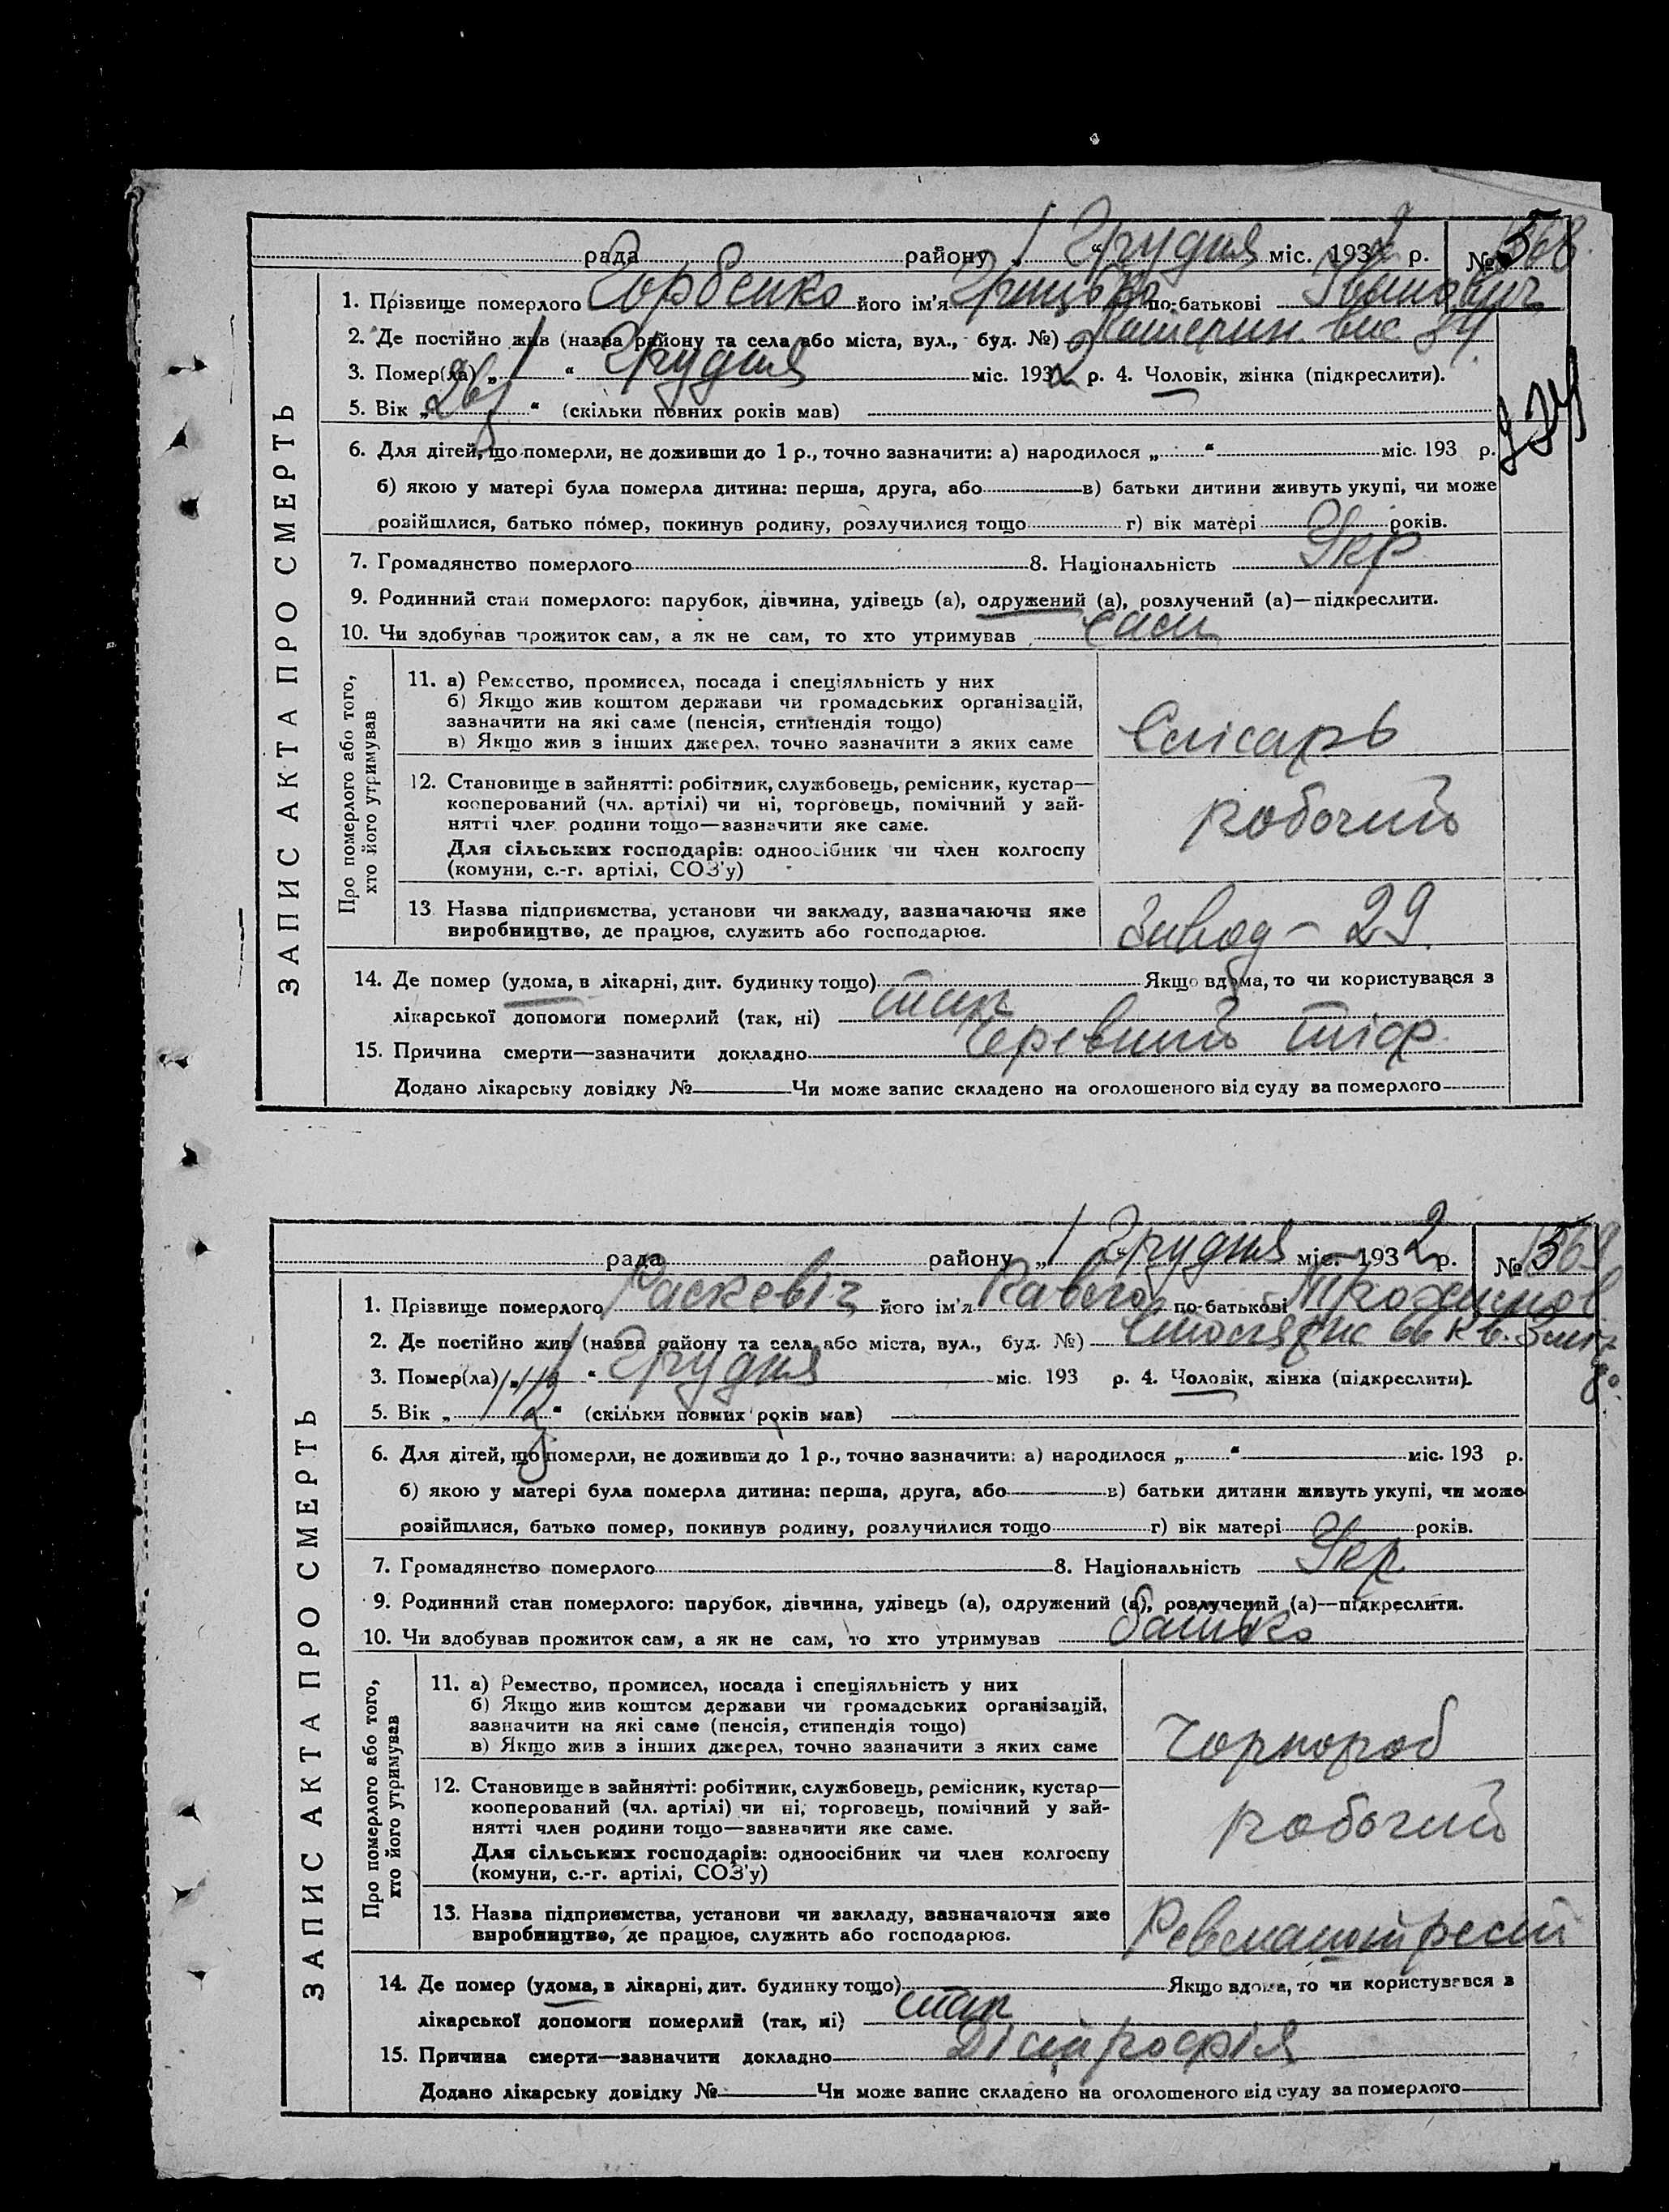 рада району „1“ Грудня міс. 1932 р. № 568
1. Прізвище померлого Горбенко його ім'я Грицько по-батькові Іванович
2. Де постійно жив (назва району та села або міста, вул., буд. №)
3. Помер(ла) „1“ Грудня міс. 1932 р. 4. Чоловік, жінка (підкреслити).
5. Вік „26“ (скільки повних років мав)
6. Для дітей, що померли, не доживши до 1 р., точно зазначити: а) народилося „ “ міс. 193 р.
б) якою у матері була померла дитина: перша, друга, або в) батьки дитини живуть укупі, чи може
розійшлися, батько помер, покинув родину, розлучилися тощо г) вік матері років.
7. Громадянство померлого 8. Національність Укр
9. Родинний стан померлого: парубок, дівчина, удівець (а), одружений (а), розлучений (а)—підкреслити.
10. Чи здобував прожиток сам, а як не сам, то хто утримував сам
ЗАПИС АКТА ПРО СМЕРТЬ
Про померлого або того,
хто його утримував
11. а) Ремество, промисел, посада і спеціяльність у них
б) Якщо жив коштом держави чи громадських організацій,
зазначити на які саме (пенсія, стипендія тощо)
в) Якщо жив з інших джерел, точно зазначити з яких саме
Слісарь
12. Становище в зайнятті: робітник, службовець, ремісник, кустар—
кооперований (чл. артілі) чи ні, торговець, помічний у зай-
нятті член родини тощо—зазначити яке саме.
Для сільських господарів: одноосібник чи член колгоспу
(комуни, с.-г. артілі, СОЗ'у)
робочий
13 Назва підприємства, установи чи закладу, зазначаючи яке
виробництво, де працює, служить або господарює.
Завод – 29.
14. Де помер (удома, в лікарні, дит. будинку тощо) Якщо вдома, то чи користувався з
лікарської допомоги померлий (так, ні) так
15. Причина смерти—зазначити докладно Черевний тіф
Додано лікарську довідку № Чи може запис складено на оголошеного від суду за померлого
рада району „1“ Грудня міс. 1932 р. № 569
1. Прізвище померлого Раскевіч його ім'я Павло по-батькові
2. Де постійно жив (назва району та села або міста, вул., буд. №)
3. Помер(ла) „1“ Грудня міс. 193 р. 4. Чоловік, жінка (підкреслити).
5. Вік „ “ (скільки повних років мав)
6. Для дітей, що померли, не доживши до 1 р., точно зазначити: а) народилося „ “ міс. 193 р.
б) якою у матері була померла дитина: перша, друга, або в) батьки дитини живуть укупі, чи може
розійшлися, батько помер, покинув родину, розлучилися тощо г) вік матері років.
7. Громадянство померлого 8. Національність Укр
9. Родинний стан померлого: парубок, дівчина, удівець (а), одружений (а), розлучений (а)—підкреслити.
10. Чи здобував прожиток сам, а як не сам, то хто утримував батько
ЗАПИС АКТА ПРО СМЕРТЬ
Про померлого або того,
хто його утримував
11. а) Ремество, промисел, посада і спеціяльність у них
б) Якщо жив коштом держави чи громадських організацій,
зазначити на які саме (пенсія, стипендія тощо)
в) Якщо жив з інших джерел, точно зазначити з яких саме
Чорнороб
12. Становище в зайнятті: робітник, службовець, ремісник, кустар—
кооперований (чл. артілі) чи ні, торговець, помічний у зай-
нятті член родини тощо—зазначити яке саме.
Для сільських господарів: одноосібник чи член колгоспу
(комуни, с.-г. артілі, СОЗ'у)
робочий
13. Назва підприємства, установи чи закладу, зазначаючи яке
виробництво, де працює, служить або господарює.
14. Де помер (удома, в лікарні, дит. будинку тощо) Якщо вдома, то чи користувався з
лікарської допомоги померлий (так, ні) так
15. Причина смерти—зазначити докладно Дістрофія
Додано лікарську довідку № Чи може запис складено на оголошеного від суду за померлого